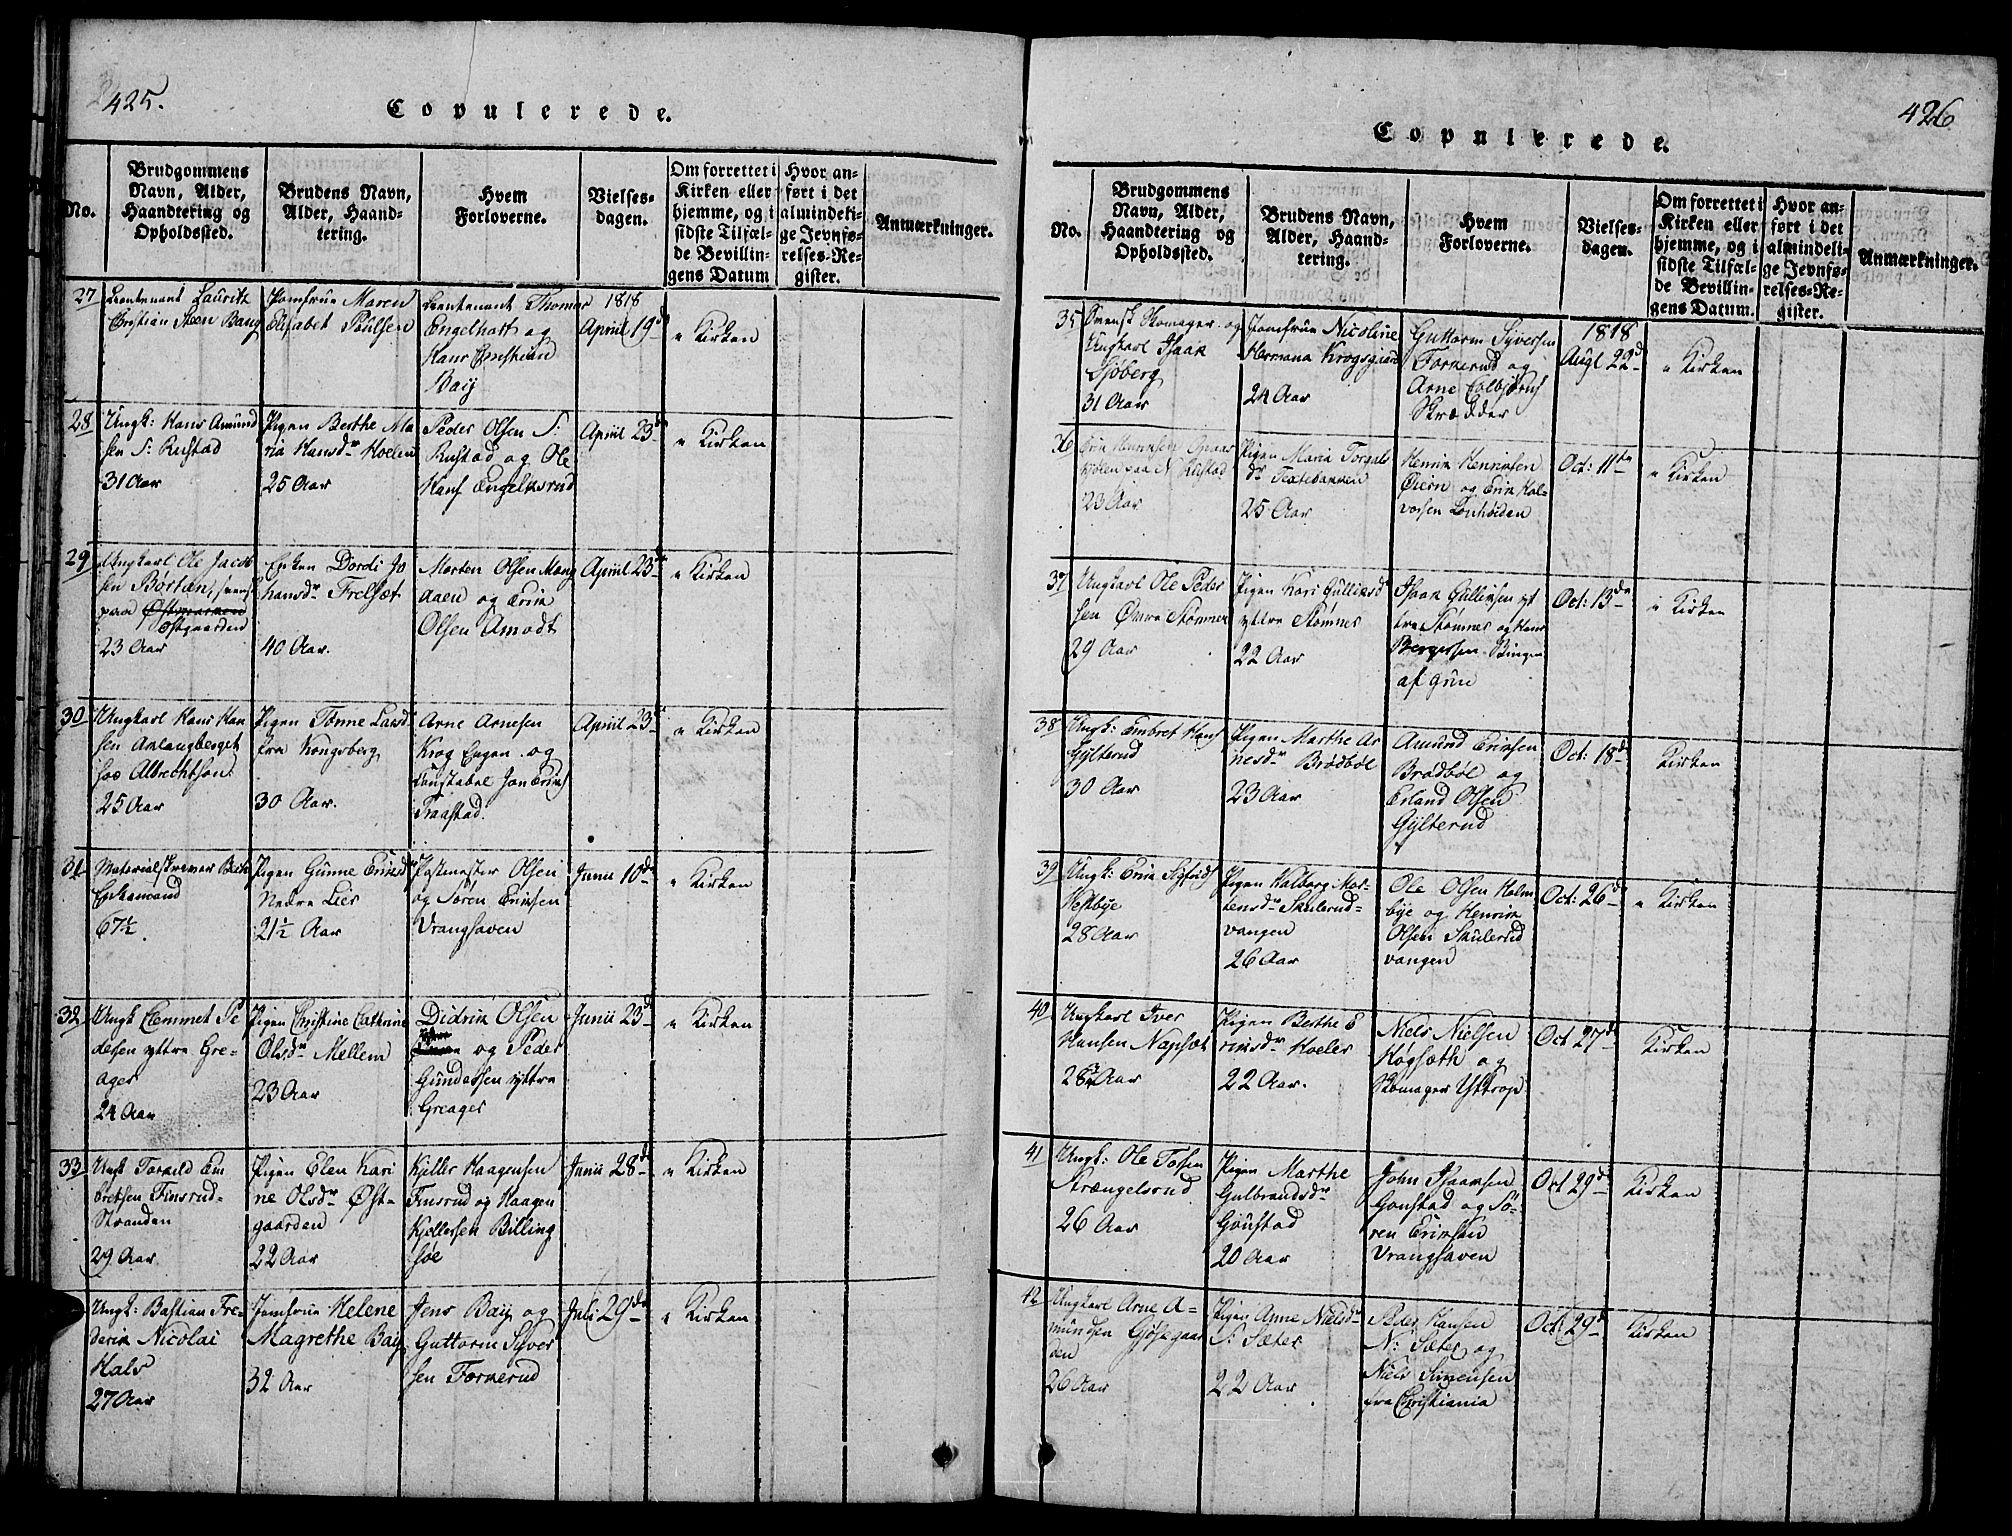 425.
Copulerede.
No.
Brudgommens
Navn, Alder,
Haandtering og
Opholdssted.
Brudens Navn,
Alder, Haand-
tering.
Hvem
Forloverne.
Vielses-
dagen.
Om forrettet i
Kirken eller
hjemme, og i
sidste Tilfæl-
de Bevillin-
gens Datum
Hvor an-
ført i det
almindeli-
ge Jevnfø-
relses-Re-
gister.
Anmærkninger.
27
Lieutenant Lauritz
Christian Steen Bang
Jomfrue Maren
Elisabet Poulsen
Lieutenant Thomas
Engelhart og
Hans Christian
Baÿ
1818
April 19d
" Kirken
28
Ungk: Hans Amund
sen S: Rustad
31 Aar
Pigen Berthe Ma
ria Hansdr Moelen
25 Aar
Peder Olsen S:
Rustad og Ole
Hans Engelhsrud
April 23d
" Kirken
29
Ungkarl Ole Jacob
sen Børtan,
paa
Østgaarden
23 Aar
Enken Dordi Jo
hansdr Frelset
40 Aar.
Morten Olsen Mang
aaen og Erik
Olsen Amodt
April 23d
" Kirken
30
Ungkarl Hans Han
sen Anlangberget
Albrechtson
25 Aar
Pigen Tonne Larsd
fra Kongsberg
30 Aar.
Arne Arnesen
Krog Engen og
Constabel Jon Erichs
Traastad.
April 23d
" Kirken
31
Materialskriver
Enkemand
67½
Pigen Gunne Ericsdr
Nedre Lier
21½ Aar
Postmester Olsen
og Soren Ericksen
Vranghaven
Junii 10d
" Kirken
32
Ungk Clemmet Pe
dersen yttre Gre-
ager
24 Aar
Pigen Christine Cathrine
Olsdr Mellem
23 Aar
Didrik Olsen
og Peder
Gundersen yttre
Greager
Junii 23d
" Kirken
33
Ungk Torkild Em
bretsen Finsrud-
Stranden
29 Aar
Pigen Elen Kari
ne Olsdr Øst-
gaarden
22 Aar
Kjeller Haagensen
Finsrud og Haagen
Kjellersen Billing
søe
Junii 28d
" Kirken
Ungk: Bastian Fre-
derik Nicolai
Hals
27 Aar
Jomfrue Helene
Magrethe Baÿ
32 Aar
Jens Baÿ og
Guttorm Syver
sen Fornerud
Juli 29d
" Kirken
426
Copulerede.
No.
Brudgommens
Navn, Alder,
Haandtering og
Opholdssted.
Brudens Navn,
Alder, Haand-
tering.
Hvem
Forloverne.
Vielses-
dagen.
Om forrettet i
Kirken eller
hjemme, og i
sidste Tilfæl-
de Bevillin-
gens Datum.
Hvor an-
ført i det
almindeli-
ge Jevnfø-
relses-Re-
gister.
Anmærkninger.
35
Svensk Skomager og
Ungkarl Isaak
Sjøberg
31 Aar
Jomfrue Nicoline
Hermana Krogsgaard
24 Aar
Guttorm Syversen
Fornerud og
Arne Colbjørns
Skrædder
1818
Augt 22d
" Kirken
36
Erik Henriksen
paa N: Rustad
23 Aar
Pigen Maria Torgals
dr Textebakken
25 Aar
Henrik Henriksen
Øiern og Erik Hal-
vorsen Lonhøiden
Oct: 11te
" Kirken
37
Ungkarl Ole Peder
sen Øvre Stømner
29 Aar
Pigen Kari Gullicksd
yttre Stømner
22 Aar
Isaak Gullicksen yt
tre Stømner og Hans
Bergersen Bingen
af grue
Oct: 13de
" Kirken
38
Ungk: Embret Hans
Gÿlterud
30 Aar
Pigen Marthe Ar
nesdr Brødbøl
23 Aar
Amund Ericksen
Brødbøl og
Erland Olsen
Gÿlterud
Oct: 18d
Kirken
39
Ungk: Erik Sigfrids
Vestbye
28 Aar
Pigen Valborg Mor-
tensdr Skulerud-
vangen
26 Aar
Ole Olsen Holm
bye og Henrik
Olsen Skulerud
vangen
Oct: 26d
" Kirken
40
Ungkarl Iver
Hansen Napset
28¾ Aar
Pigen Berthe E
ricksdr Hoeler
22 Aar.
Niels Nielsen
Høgsæth og
Skomager Yttrop
Oct 27d
Kirken
41
Ungk: Ole Tossen
Strængelsrud
26 Aar
Pigen Marthe
Gulbrandsdr
Gonstad
20 Aar
John Isaaksen
Gonstad og Sö-
ren Ericksen
Vranghaven
Oct 29d
Kirken
42
Ungkarl Arne A-
mundsen Gjøsegaar
den
26 Aar
Pigen Anne Nielsdr
N: Sæter
22 Aar
Peder Hansen
N: Sæter og
Niels Simensen
fra Christiania
Oct 29d
Kirken